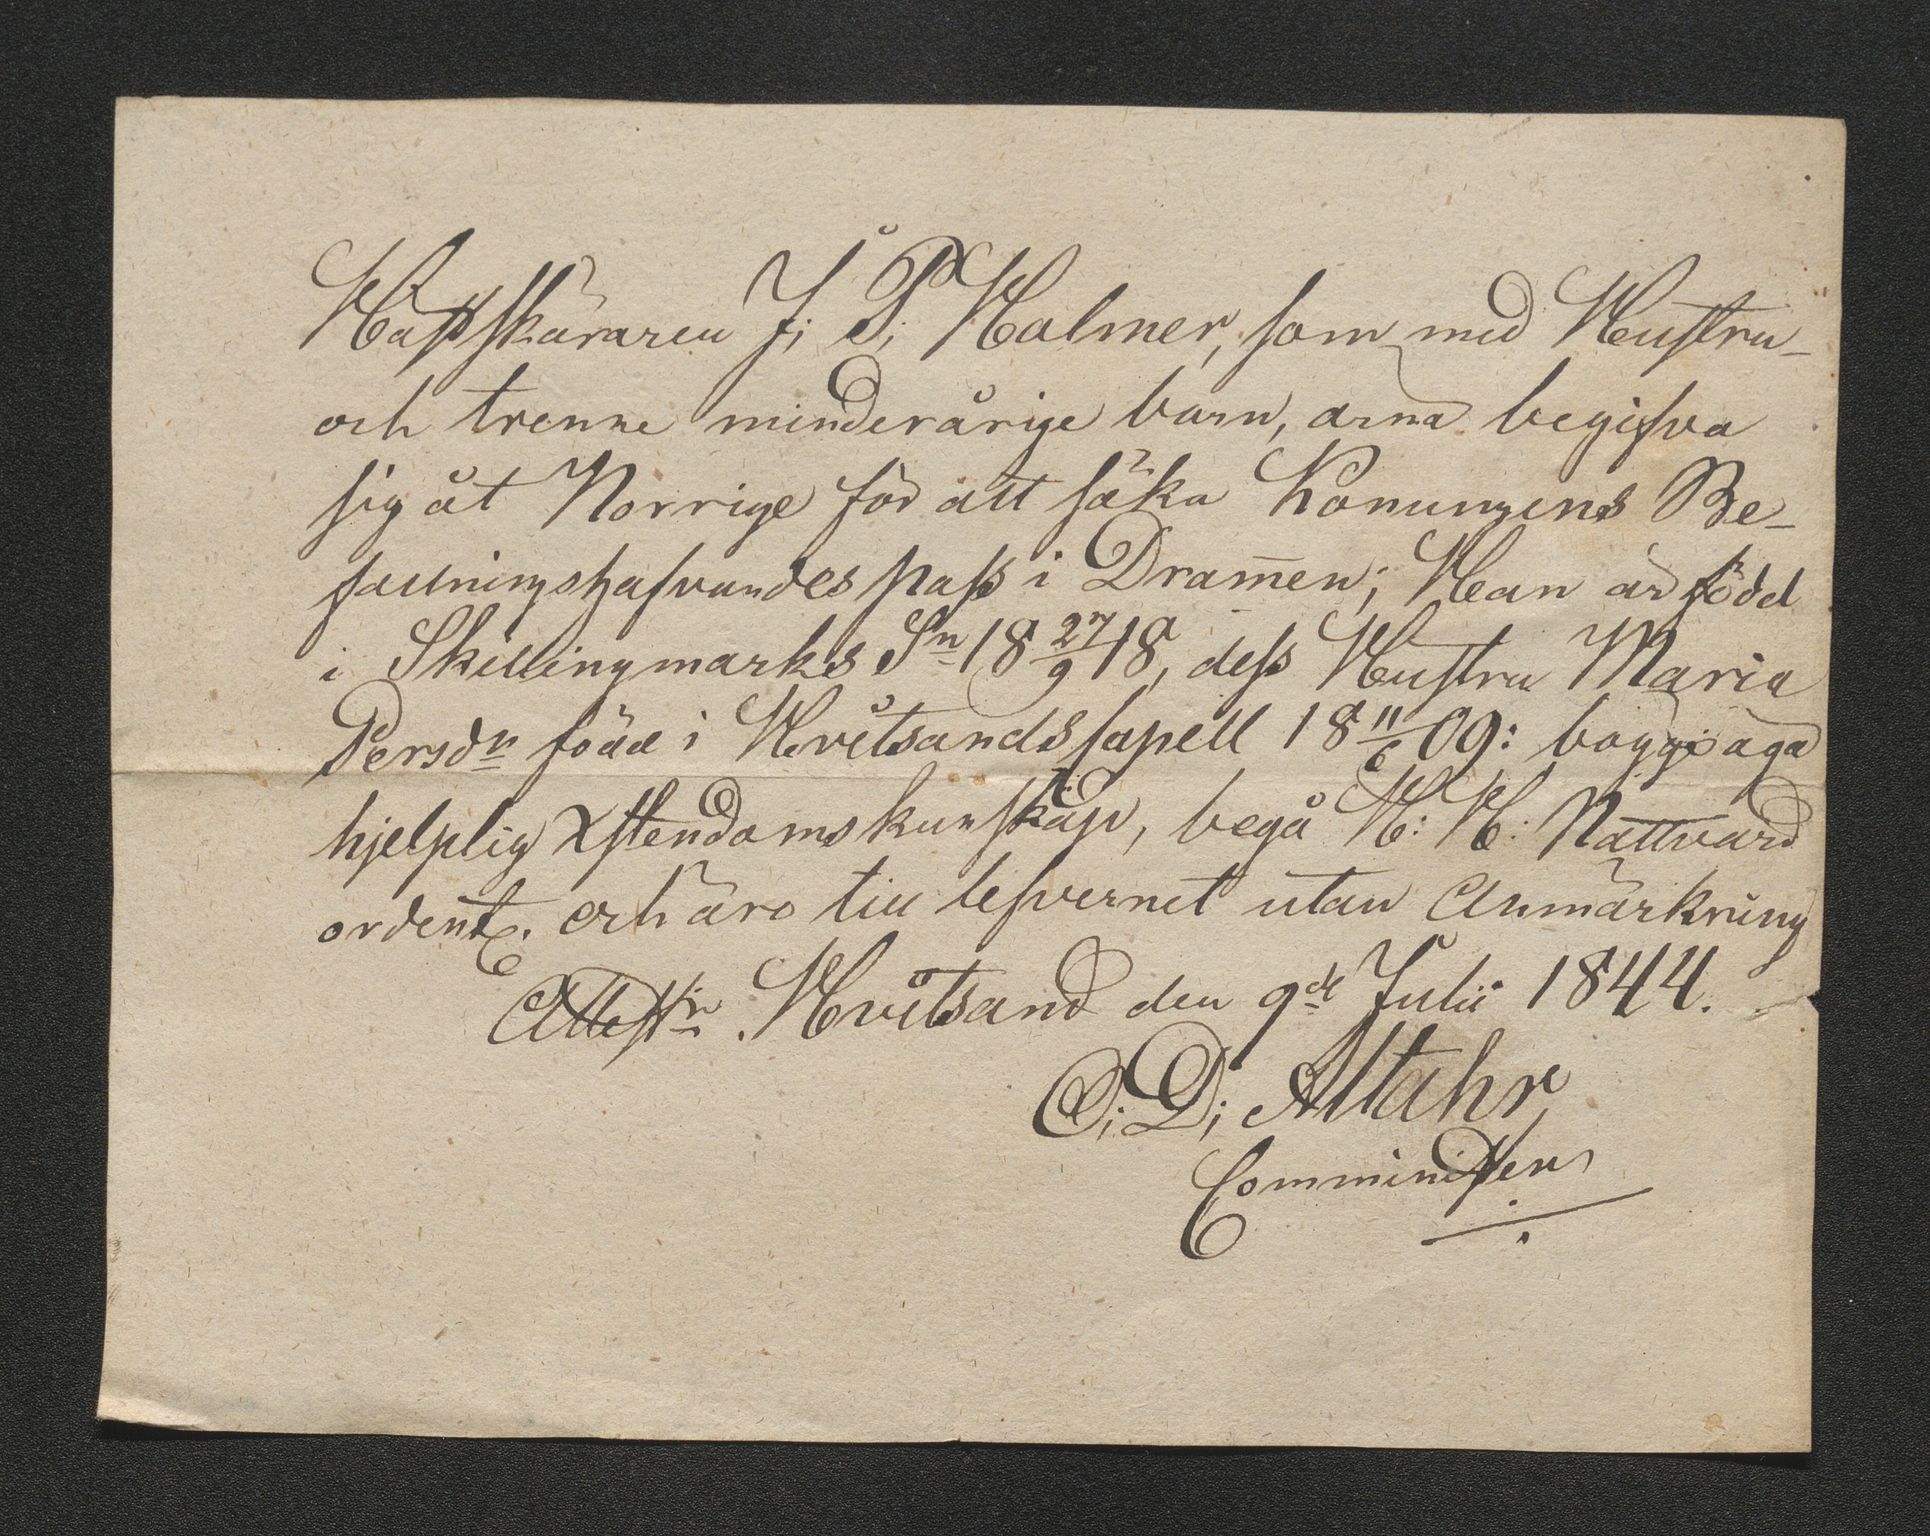 Hästskäraren J: P: Holmer, som med Hustru
och trenne minderårige barn, ärna begifva
sig åt Norrige för att söka Konungens Be-
fallningshafvandes pass i Dram̅en; Han är född
i Skillingmarks Sn 18 27/9 18, dess Hustru Maria
Persdr född i Hvitsands Capell 18 11/6 09: bägge äga
hjelplig Xstendomskunskap, begå H: H: Nattvard
ordentl. och äro till lefvernet utan Anmärkning
Attest:r Hvitsand den 9de Julii 1844.
O: D; Altahr
Comminister